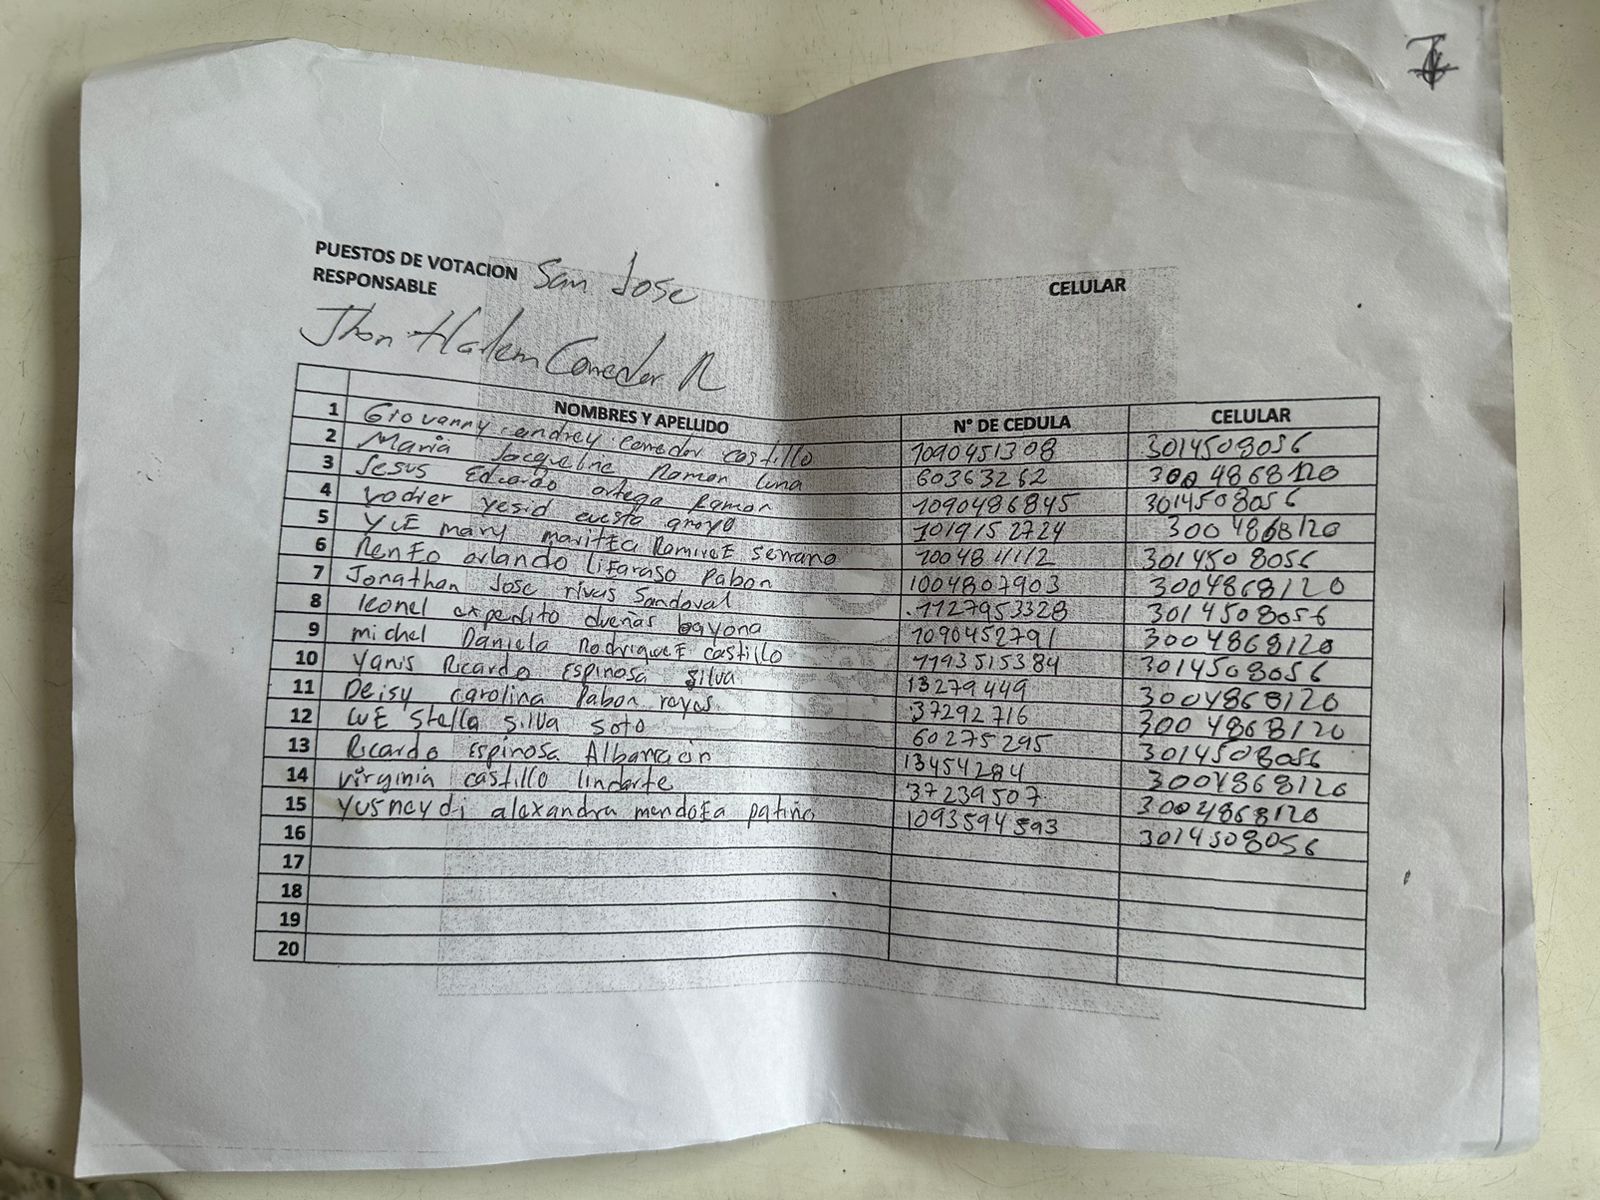 PUESTOS DE VOTACION San Jose
RESPONSABLE CELULAR
Jhon Harlem Comedor R
NOMBRES Y APELLIDO N° DE CEDULA CELULAR
1 Giovanny andrey Comedor castillo 1090451308 3014508056
2 Maria Jacqueline Ramon luna 60363262 3004868120
3 Jesus Eduardo ortega Ramon 1090486845 3014508056
4 yodier yesid cuesta aroyo 1019152724 3004868120
5 YUE mary maritEa RamireE serrano 1004841112 3014508056
6 RenEo orlando liEaraso Pabon 1004807903 3004868120
7 Jonathan Jose rivas Sandoval 1127953328 3014508056
8 leonel expedito dueñas bayona 1090452791 3004868120
9 michel Daniela RodrigueE castillo 1193515384 3014508056
10 Yanis Ricardo Espinosa silva 13279449 3004868120
11 Deisy carolina Pabon reyes 37292716 3004868120
12 luE Stella silva soto 60275295 3014508056
13 Ricardo Espinosa Albarracin 13454284 3004868120
14 virginia castillo lindarte 37239507 3004868120
15 yusneydi alexandra mendoEa patiño 1093594593 3014508056
16
17
18
19
20